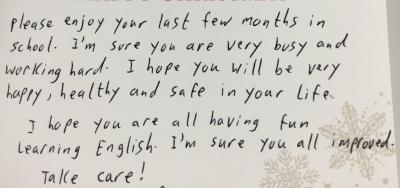 please enjoy your last few months in
school. I'm sure you are very busy and
working hard. I hope you will be very
happy, healthy and safe in your life.
I hope you are all having fun
learning English. I'm sure you all improved.
Take care!